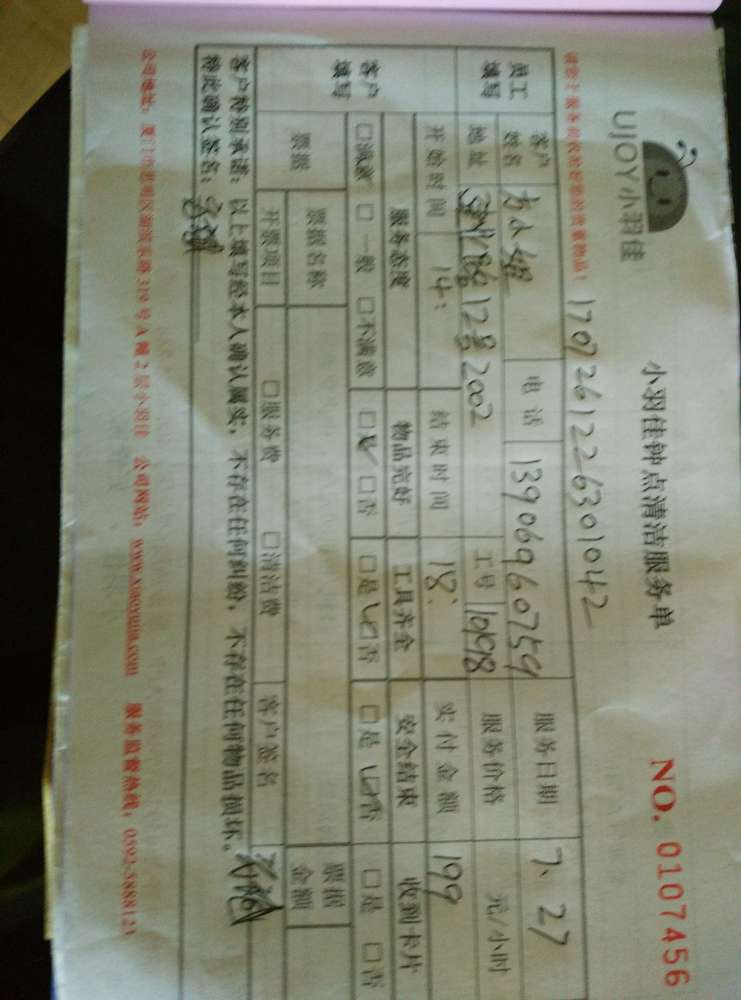 UJOY小羽佳
小羽佳钟点清洁服务单
NO. 0107456
1707261226301042
员工填写
客户姓名 方小姐 电话 13906960759 服务日期 7、27
地址 12号2002 工号 10198 服务价格 元/小时
开始时间 14: 结束时间 18: 实付金额 199
客户填写
服务态度 物品完好 工具齐全 安全结束 收到卡片
□满意 □一般 □不满意 □是 □否 □是 □否 □是 □否 □是 □否
票据 票据名称 票据金额
开票项目 □服务费 □清洁费 客户签名
客户特别承诺：以上填写经本人确认属实，不存在任何纠纷，不存在任何物品损坏。
特此确认签名：
公司地址：厦门市思明区 319号A幢2层小羽佳 公司网站：www.xiaoyujia.com 服务监督热线：0592-5888121